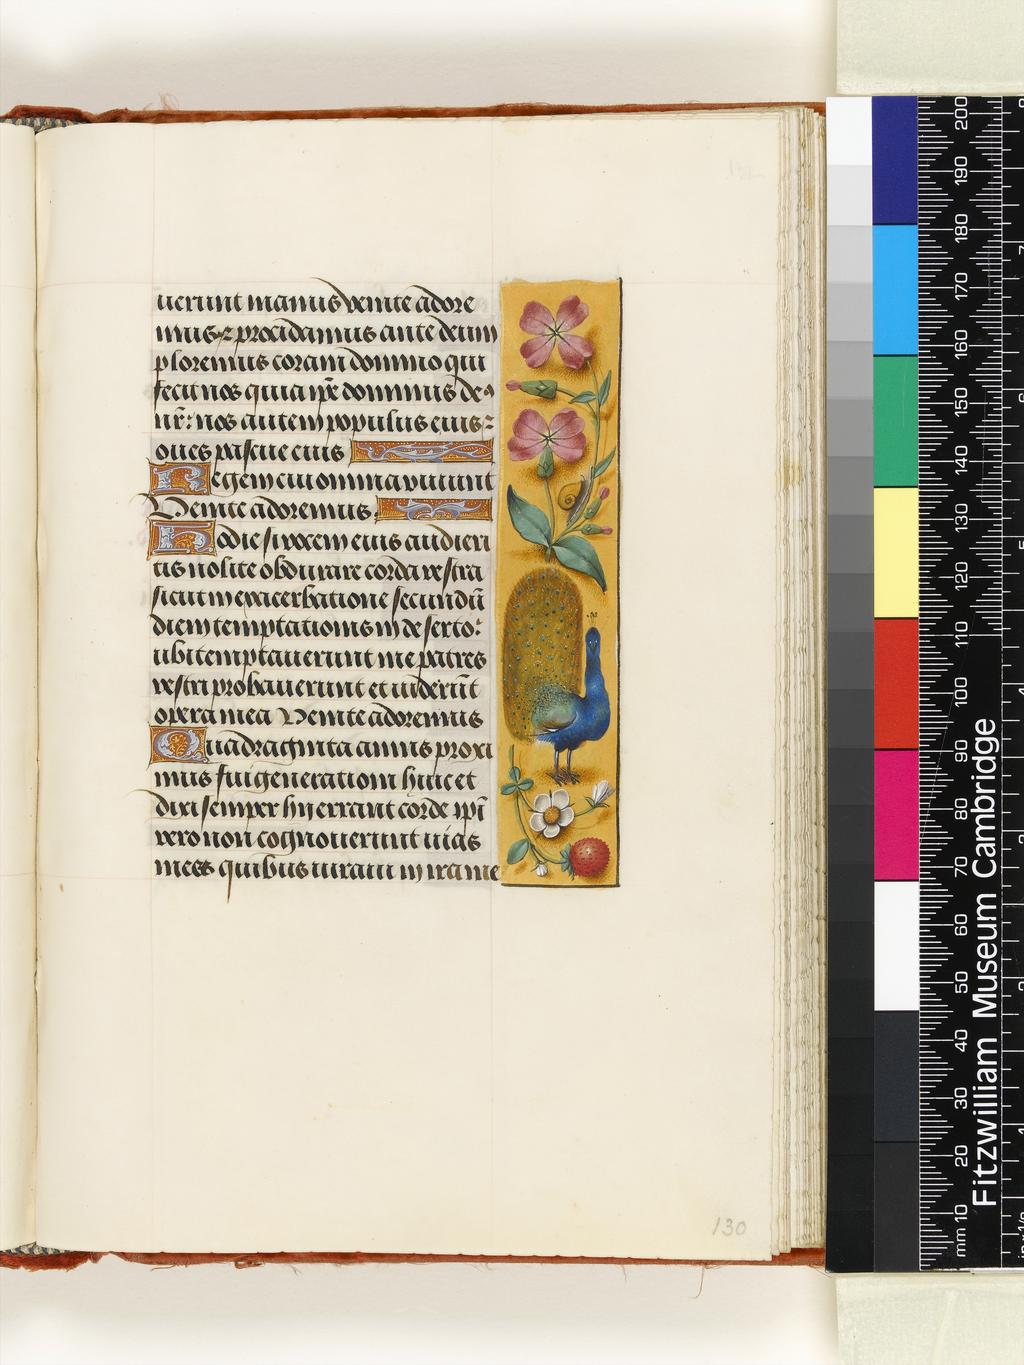 uerunt manus venite adore
mus ⁊ procidamus ante deum
ploremus coram domino qui
fecit nos quia ip̄e dominus de9
nr̄: nos autem populus eius ⁊
oues pascue eius
Regem cui omnia viuunt
Venite adoremus
Hodie si vocem eius audieri
tis nolite obdurare corda vestra
sicut in exacerbatione secundū
diem temptationis in deserto:
ubi temptauerunt me patres
vestri probauerunt et uiderūt
opera mea Venite adoremus
Quadraginta annis proxi
mus fui generationi huic et
dixi semper hii errant corde ipī
vero non cognouerunt uias
meas quibus iuraui in ira me
130
Fitzwilliam Museum Cambridge
mm 10 20 30 40 50 60 70 80 90 100 110 120 130 140 150 160 170 180 190 200